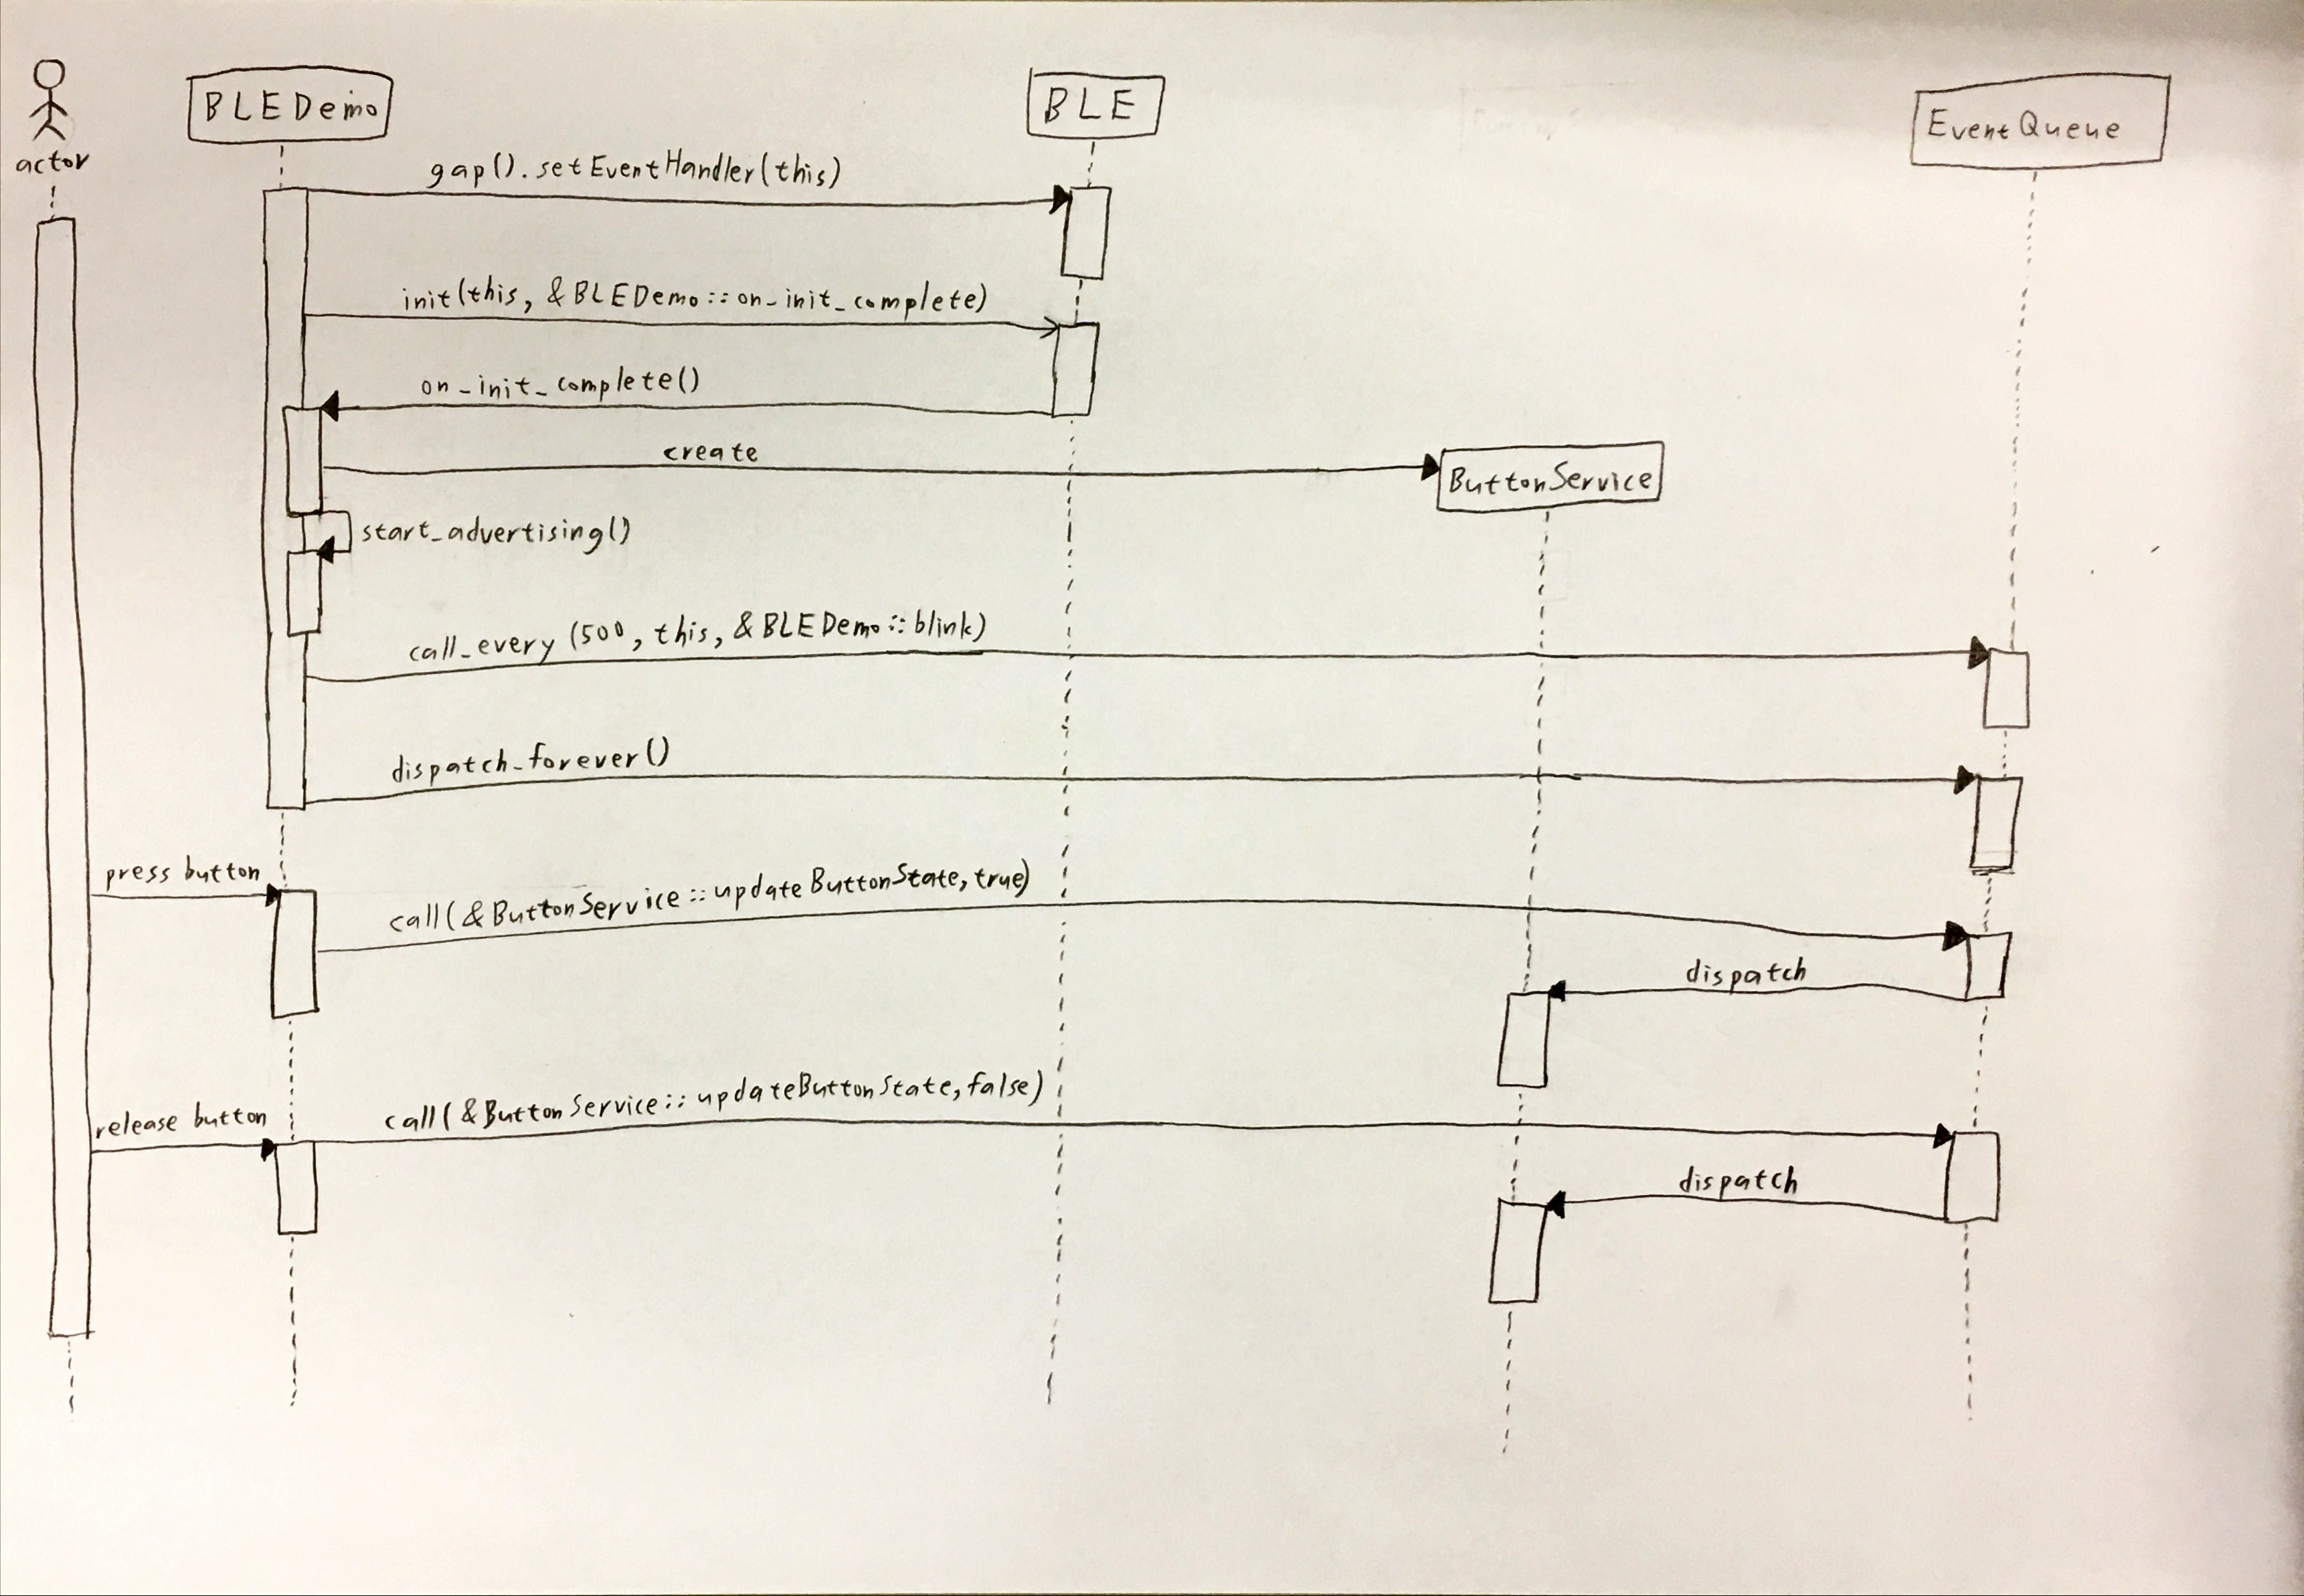 actor
BLEDemo
BLE
EventQueue
gap().setEventHandler(this)
init(this, &BLEDemo::on_init_complete)
on_init_complete()
create
ButtonService
start_advertising()
call_every(500, this, &BLEDemo::blink)
dispatch_forever()
press button
call(&ButtonService::updateButtonState, true)
dispatch
release button
call(&ButtonService::updateButtonState, false)
dispatch